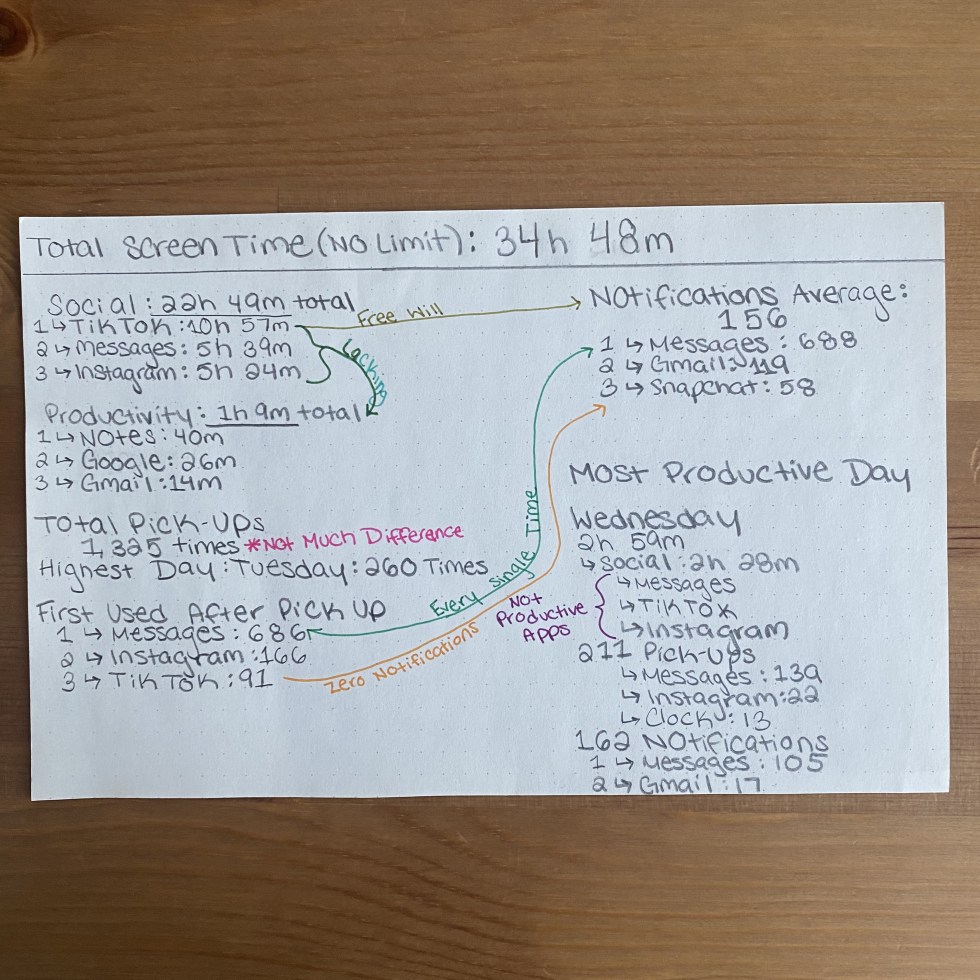 Total Screen Time (No Limit): 34h 48m
Social: 22h 49m total
1↳TikTok: 10h 57m
2↳Messages: 5h 39m
3↳Instagram: 5h 24m
Free Will
Locking
Productivity: 1h 9m total
1↳Notes: 40m
2↳Google: 26m
3↳Gmail: 14m
Total Pick-Ups
1,325 times *Not Much Difference
Highest Day: Tuesday: 260 Times
First Used After Pick Up
1↳Messages: 686
2↳Instagram: 166
3↳TikTok: 91
Every single Time
Zero Notifications
Notifications Average:
156
1↳Messages: 688
2↳Gmail: 119
3↳Snapchat: 58
Most Productive Day
Wednesday
2h 59m
↳Social: 2h 28m
↳Messages
↳TikTok
↳Instagram
Not
Productive
Apps
211 Pick-Ups
↳Messages: 139
↳Instagram: 22
↳Clock: 13
162 Notifications
1↳Messages: 105
2↳Gmail: 17